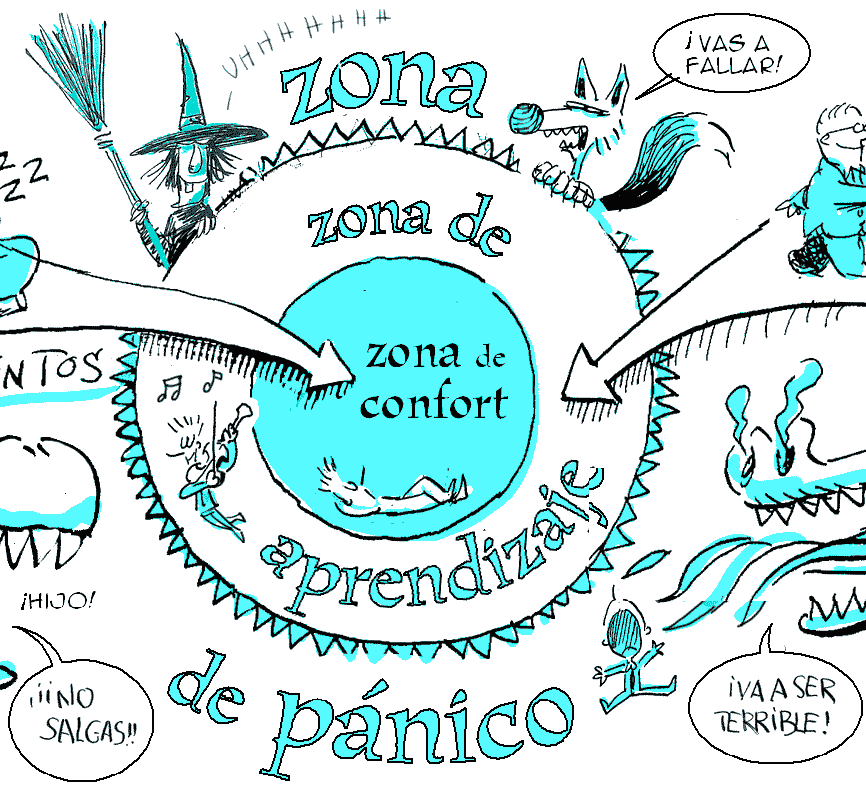 UHHHHHHHH
zona
¡VAS A
FALLAR!
ZZZZ
zona de
zona de
confort
NTOS
aprendizaje
¡HIJO!
¡¡¡NO
SALGAS!!
de pánico
¡VA A SER
TERRIBLE!